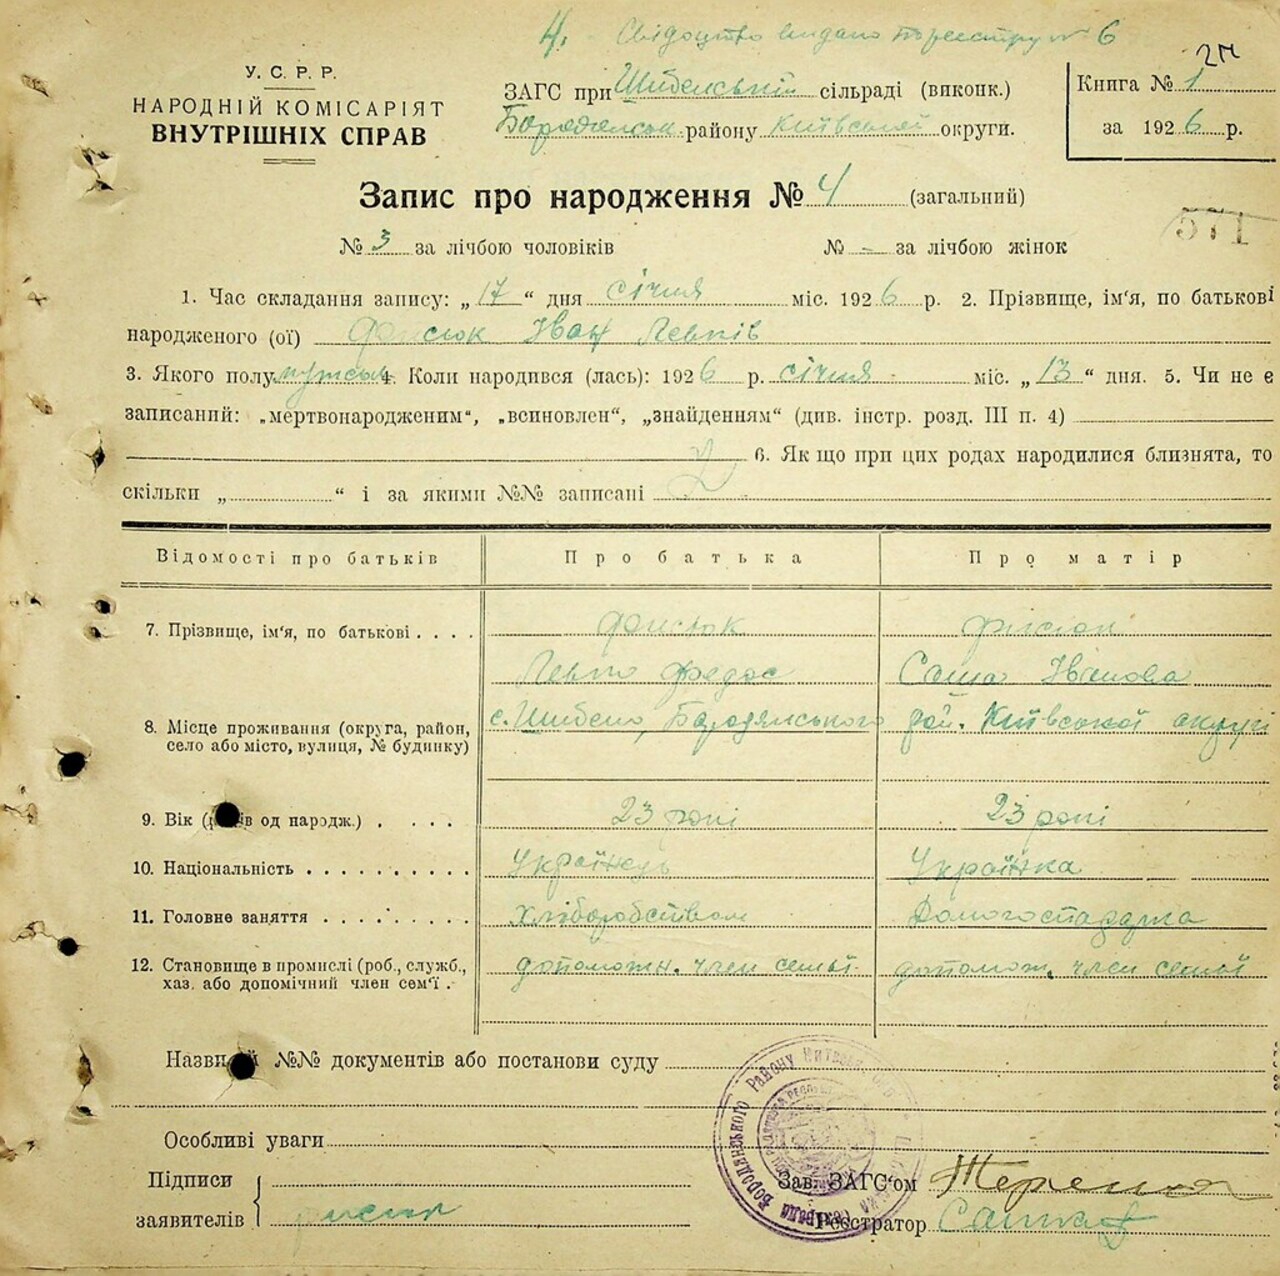 4. Свідоцтво видано по реєстру № 6
2М
У. С. Р. Р.
НАРОДНІЙ КОМІСАРІЯТ
ВНУТРІШНІХ СПРАВ
ЗАГС при Шибенській сільраді (виконк.)
Бородянськ. району Київської округи.
Книга № 1
за 1926 р.
Запис про народження № 4 (загальний)
№ 3 за лічбою чоловіків № – за лічбою жінок
175
1. Час складання запису: „17“ дня січня міс. 1926 р. 2. Прізвище, ім'я, по батькові
народженого (ої) Фисюк Іван Левків
3. Якого полу 4. Коли народився (лась): 1926 р. січня міс. „13“ дня. 5. Чи не є
записаний: „мертвонародженим“, „всиновлен“, „знайденням“ (див. інстр. розд. III п. 4)
6. Як що при цих родах народилися близнята, то
скільки „ “ і за якими №№ записані
Відомості про батьків Про батька Про матір
7. Прізвище, ім'я, по батькові . . . . Фисюк Фисюк
Левко Федос Саша Іванова
8. Місце проживання (округа, район, село або місто, вулиця, № будинку) с. Шибено, Бородянського рай. Київської округи
9. Вік (років од народж.) . . . . . 23 роки 23 роки
10. Національність . . . . . . . . . . Українець Українка
11. Головне заняття . . . . . . . . . Хліборобством Домогосподарка
12. Становище в промислі (роб., служб., хаз. або допомічний член сем'ї . допоможн. член семьї допомож. член семьї
Назви й №№ документів або постанови суду
Особливі уваги
Підписи
заявителів Фисюк
Бородянського району
Зав. ЗАГС'ом
Реєстратор